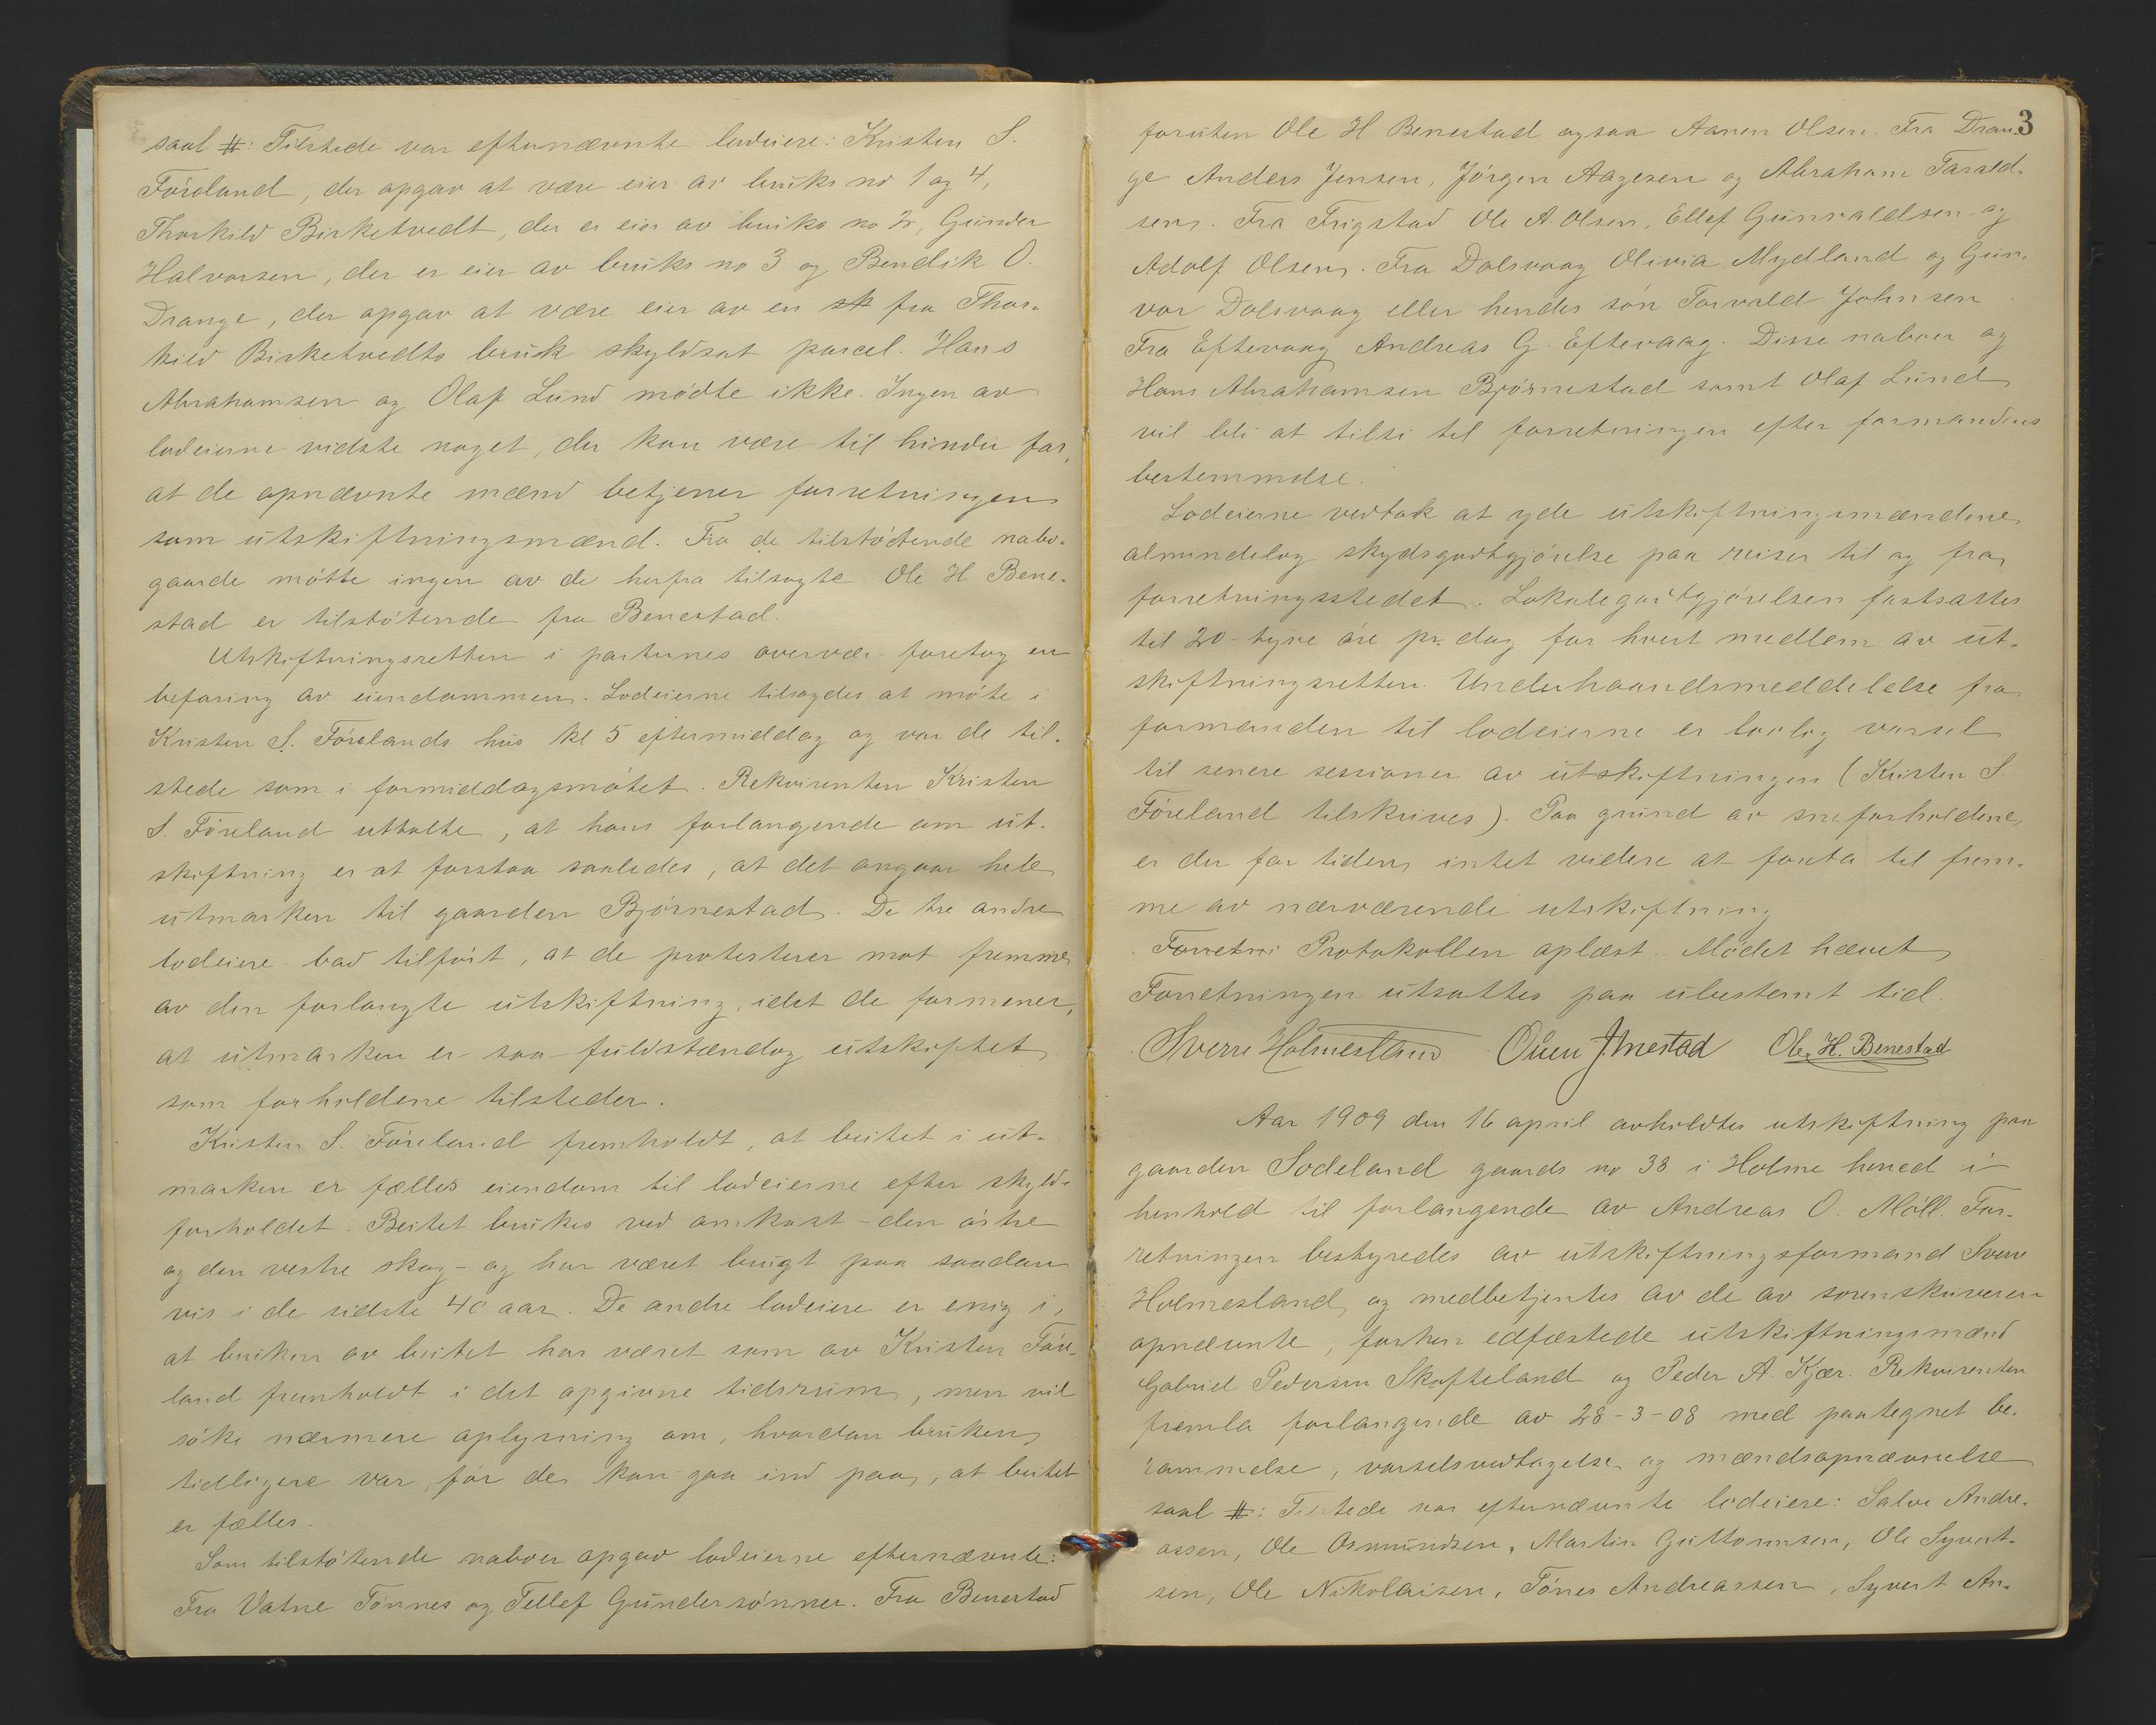 saal #: Tilstede var efternævnte lodeiere: Kristen S.
Föreland, der opgav at være eier av bruks no 1 og 4,
Thorkild Birketvedt, der er eier av bruks no 2, Gunder
Halvorsen, der er eier av bruks no 3 og Bendik O.
Drange, der opgav at være eier av en sk fra Thor-
kild Birketvedts bruk skyldsat parcel. Hans
Abrahamsen og Olaf Lund mödte ikke. Ingen av
lodeierne vidste noget, der kan være til hinder for,
at de opnævnte mænd betjener forretningen
som utskiftningsmænd. Fra de tilstötende nabo-
gaarde mötte ingen av de herfra tilsagte. Ole H Bene-
stad er tilstötende fra Benestad.
Utskiftningsretten i parternes overvær foretog en
befaring av eiendommen. Lodeierne tilsagdes at möte i
Kristen S. Förelands hus kl 5 eftermiddag og var de til-
stede som i formiddagsmötet. Rekvirenten Kristen
S. Föreland uttalte, at hans forlangende om ut-
skiftning er at forstaa saaledes, at det angaar hele
utmarken til gaarden Björnestad. De tre andre
lodeiere bad tilfört, at de protesterer mot fremme
av den forlangte utskiftning, idet de formener,
at utmarken er saa fuldstændog utskiftet
som forholdene tilsteder.
Kristen S. Föreland fremholdt, at beitet i ut-
marken er fælles eiendom til lodeierne efter skyld-
forholdet. Beitet brukes ved omkast - den östre
og den vestre skog - og har været brugt paa saadan
vis i de sidste 40 aar. De andre lodeiere er enig i,
at bruken av beitet har været som av Kristen Före-
land fremholdt i det opgivne tidsrum, men vil
söke nærmere oplysning om, hvordan bruken
tidligere var, för de kan gaa ind paa, at beitet
er fælles.
Som tilstötende naboer opgav lodeierne efternævnte:
Fra Vatne Tönnes og Tellef Gundersönner. Fra Benestad
3
foruten Ole H Benestad ogsaa Aanen Olsen. Fra Dran-
ge Anders Jensen, Jörgen Aagesen og Abraham Tarald-
sen. Fra Frigstad Ole A Olsen, Ellef Gunvaldsen og
Adolf Olsen. Fra Dalsvaag Olivia Mydland og Gun-
vor Dalsvaag eller hendes sön Torvald Johnsen.
Fra Eftevaag Andreas G. Eftevaag. Disse naboer og
Hans Abrahamsen Björnestad samt Olaf Lund
vil bli at tilsi til forretningen efter formandens
bestemmelse.
Lodeierne vedtok at yde utskiftningsmændene
almindelog skydsgodtgjörelse paa reiser til og fra
forretningsstedet. Lokalegodtgjörelsen fastsattes
til 20 - tyve öre pr. dag for hvert medlem av ut-
skiftningsretten. Underhaandsmeddelelse fra
formanden til lodeierne er lovlig varsel
til senere sessioner av utskiftningen (Kristen S.
Föreland tilskrives). Paa grund av sneforholdene
er der for tiden intet videre at foreta til frem-
me av nærværende utskiftning
Forretni Protokollen oplæst. Mödet hævet
Forretningen utsattes paa ubestemt tid.
Sverre Holmesland Ole H. Benestad
Aar 1909 den 16 april avholdtes utskiftning paa
gaarden Sodeland gaards no 38 i Holme herred i
henhold til forlangende av Andreas O. Möll. For-
retningen bestyredes av utskiftningsformand Sverre
Holmesland og medbetjentes av de av sorenskriveren
opnævnte, forhen edfæstede utskiftningsmænd
Gabriel Pedersen Skofteland og Peder A. Kjær. Rekvirenten
fremla forlangende av 28-3-08 med paategnet be-
rammelse, varselsvedtagelse og mændsopnævnelse
saal #: Tilstede var efternævnte lodeiere: Salve Andre-
assen, Ole Osmundsen, Martin Guttormsen, Ole Syvert-
sen, Ole Nikolaisen, Tönes Andreassen, Syvert An-